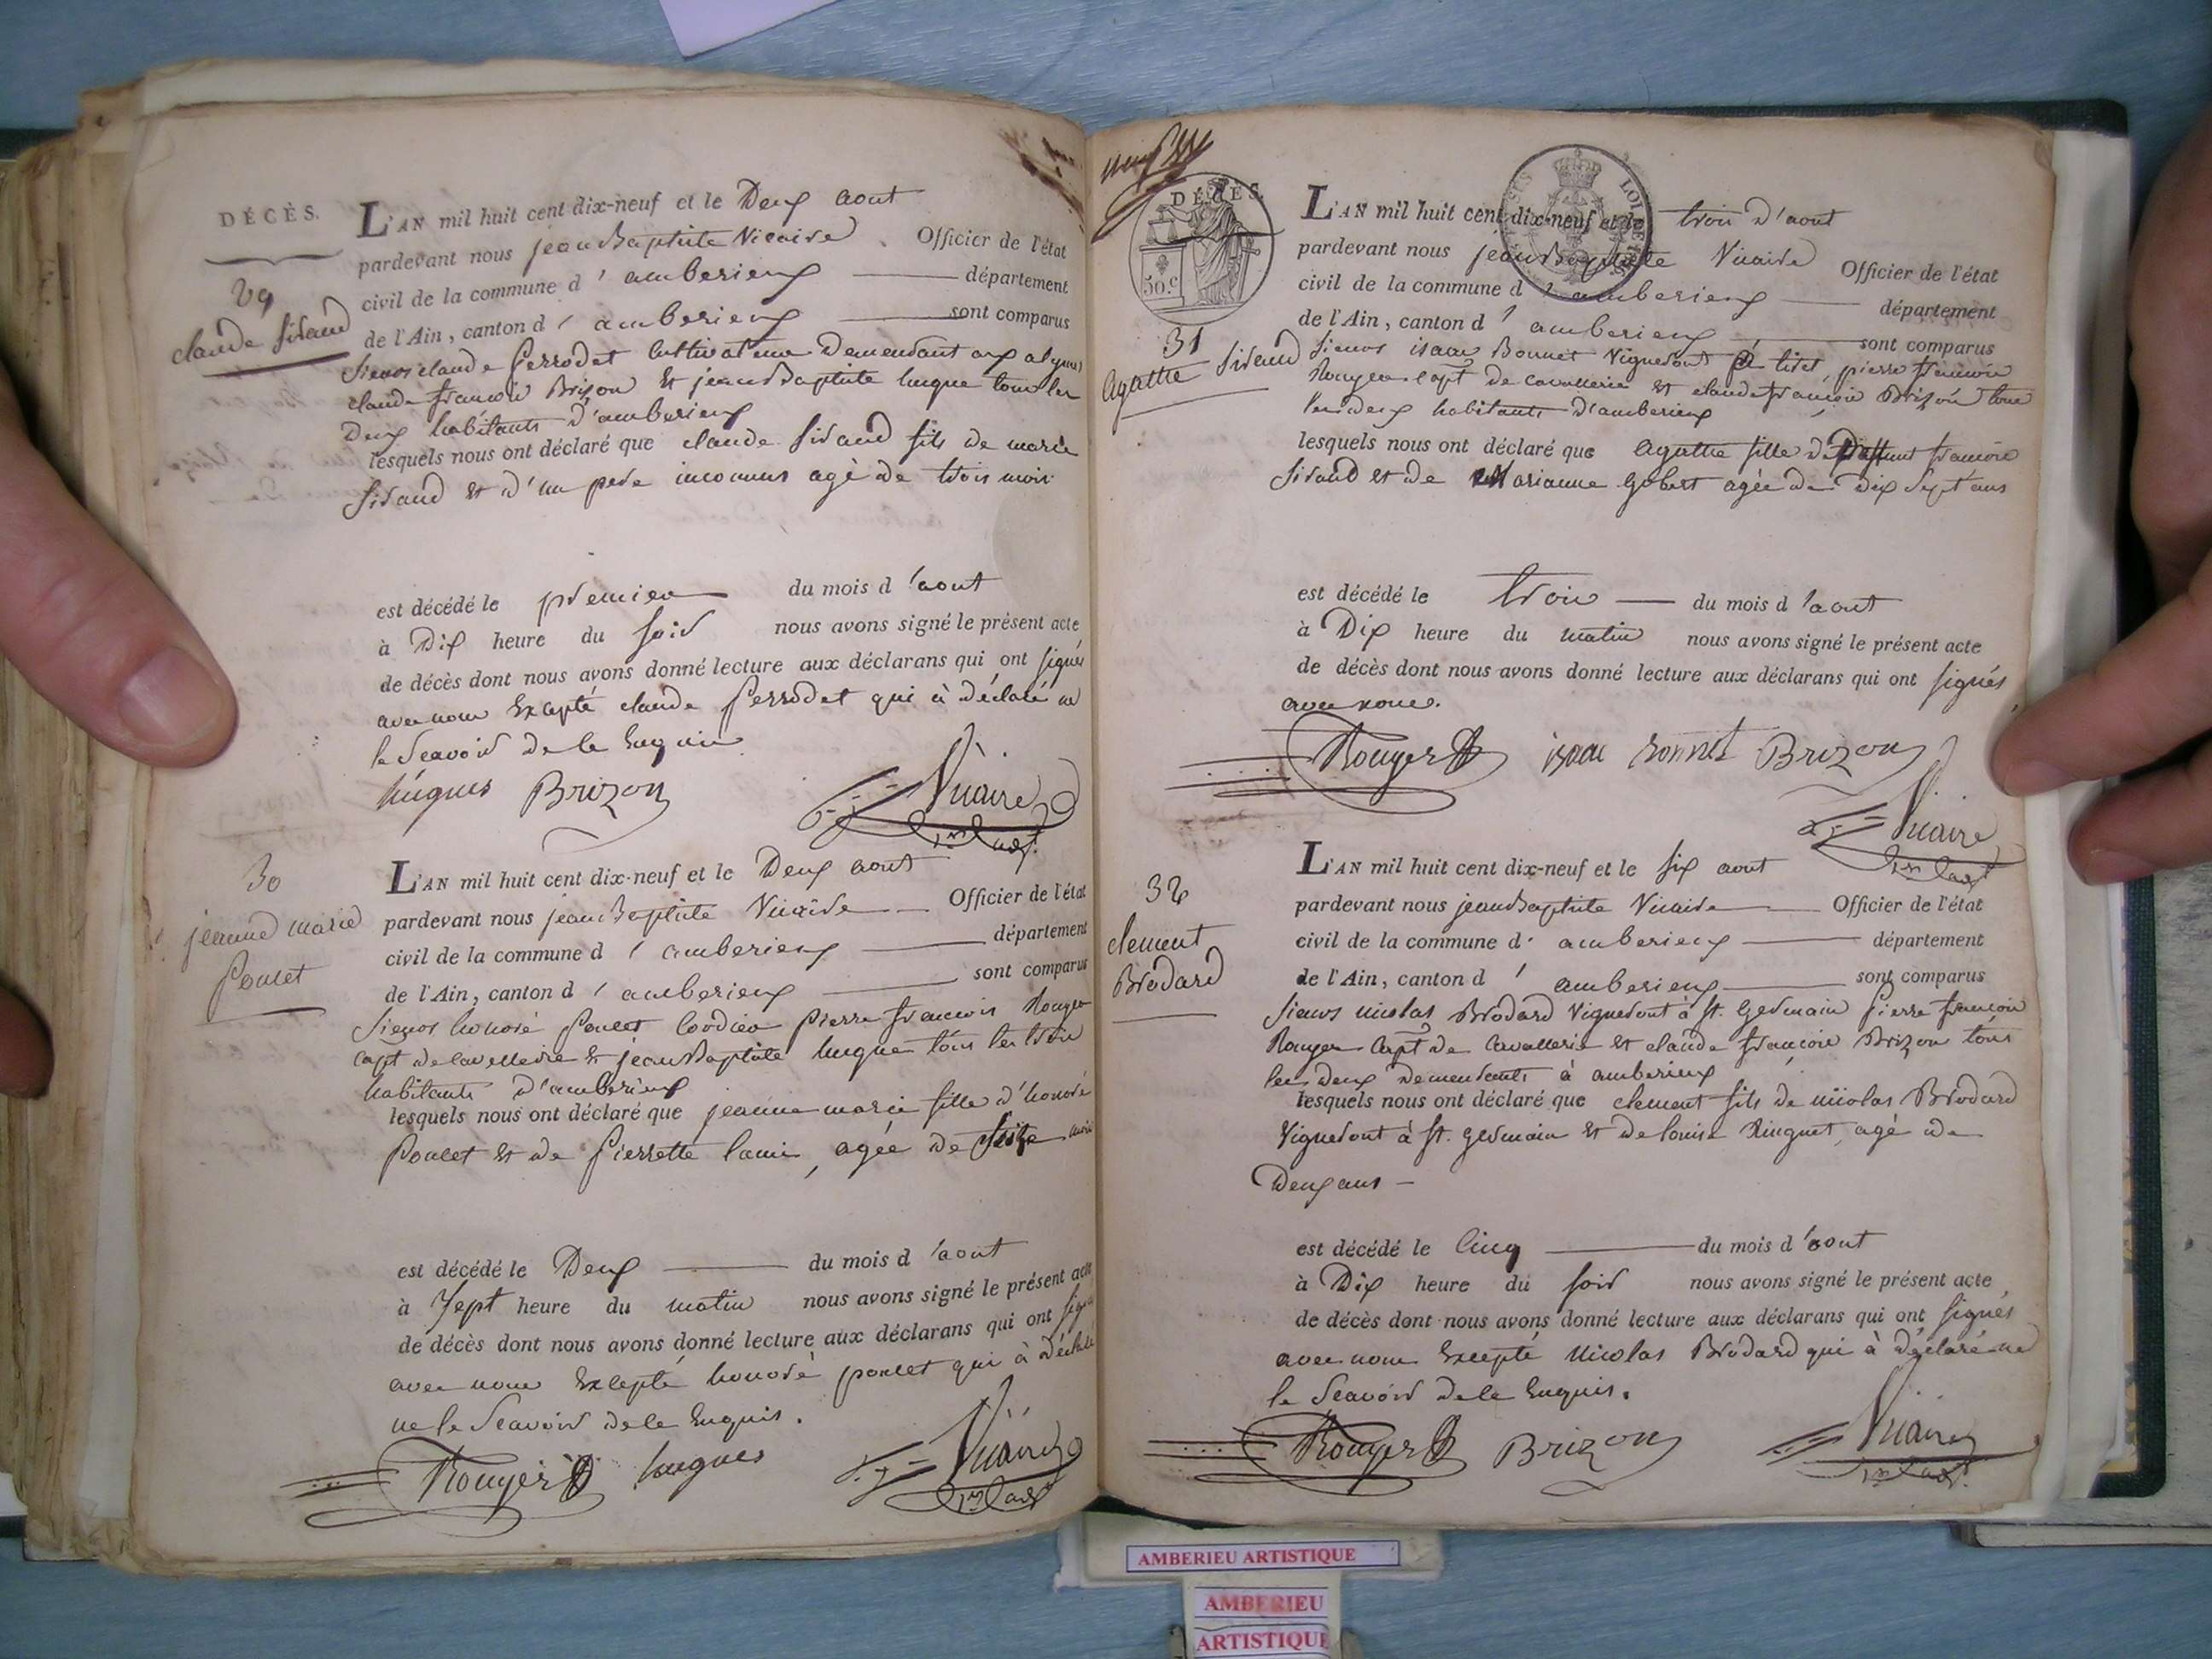 DÉCÈS.
29
claude Siraud
L'AN mil huit cent dix-neuf et le Deux aout
pardevant nous jean Baptiste Vicaire Officier de l'état
civil de la commune d'amberieux département
de l'Ain, canton d'amberieux sont comparus
Sieurs claude Perrodet Cultivateur Demeurant aux
claude françois Brizon et jean Baptiste hugue tous les
Deux habitants d'amberieux
lesquels nous ont déclaré que claude Siraud fils de marie
Siraud et d'un pere inconnus agé de trois mois
est décédé le premier du mois d'aout
à Dix heure du soir nous avons signé le présent acte
de décès dont nous avons donné lecture aux déclarans qui ont signés
avec nous Excepté claude Perrodet qui à déclaré ne
le Scavoir de le Enquis
hugues Brizon Vicaire
30
jeanne marie
Poncet
L'AN mil huit cent dix-neuf et le Deux aout
pardevant nous jean Baptiste Vicaire Officier de l'état
civil de la commune d'amberieux département
de l'Ain, canton d'amberieux sont comparus
Sieurs honoré Poncet Cordier Pierre françois Rouyer
capt de cavallerie et jean Baptiste hugue tous les trois
habitants d'amberieux
lesquels nous ont déclaré que jeanne marie fille d'honoré
Poncet et de Pierrette lamie, agée de Seize mois
est décédé le Deux du mois d'aout
à Sept heure du matin nous avons signé le présent acte
de décès dont nous avons donné lecture aux déclarans qui ont signés
avec nous Excepté honoré poncet qui à déclaré
ne le Scavoir de le Enquis.
Rouyer hugues Vicaire
DÉCÈS.
50.c
31
Agathe Siraud
L'AN mil huit cent dix-neuf et le trois d'aout
pardevant nous jean Baptiste Vicaire Officier de l'état
civil de la commune d'amberieux département
de l'Ain, canton d'amberieux sont comparus
Sieurs isaac Bonnet Vigneront à tiret, pierre françois
Rouyer capt de Cavallerie et claude françois Brizon tous
les deux habitants d'amberieux
lesquels nous ont déclaré que Agathe fille de Deffunt françois
Siraud et de Marianne Gobert agée de Dix Sept ans
est décédé le trois du mois d'aout
à Dix heure du matin nous avons signé le présent acte
de décès dont nous avons donné lecture aux déclarans qui ont signés
avec nous.
Rouyer isaac bonnet Brizon
Vicaire
32
clement
Brodard
L'AN mil huit cent dix-neuf et le six aout
pardevant nous jean Baptiste Vicaire Officier de l'état
civil de la commune d'amberieux département
de l'Ain, canton d'amberieux sont comparus
Sieurs nicolas Brodard Vigneront à St. Germain Pierre françois
Rouyer Capt de Cavallerie et claude françois Brizon tous
les deux demeurants à amberieux
lesquels nous ont déclaré que clement fils de nicolas Brodard
Vigneront à St. Germain et de louise Ringuet, agé de
Deux ans
est décédé le Cinq du mois d'aout
à Dix heure du soir nous avons signé le présent acte
de décès dont nous avons donné lecture aux déclarans qui ont signés
avec nous Excepté Nicolas Brodard qui à déclaré ne
le Scavoir de le Enquis.
Rouyer Brizon Vicaire
AMBERIEU ARTISTIQUE
AMBERIEU
ARTISTIQUE